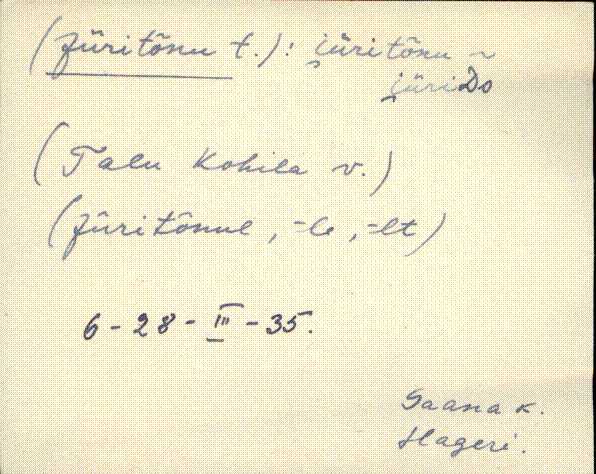 (Jüritõnu t.): i̯üritõnu ~
i̯üriDo
(Talu Kohila v.)
(Jüritõnul, =le, =lt)
6-28-III-35.
Saana k.
Hageri.